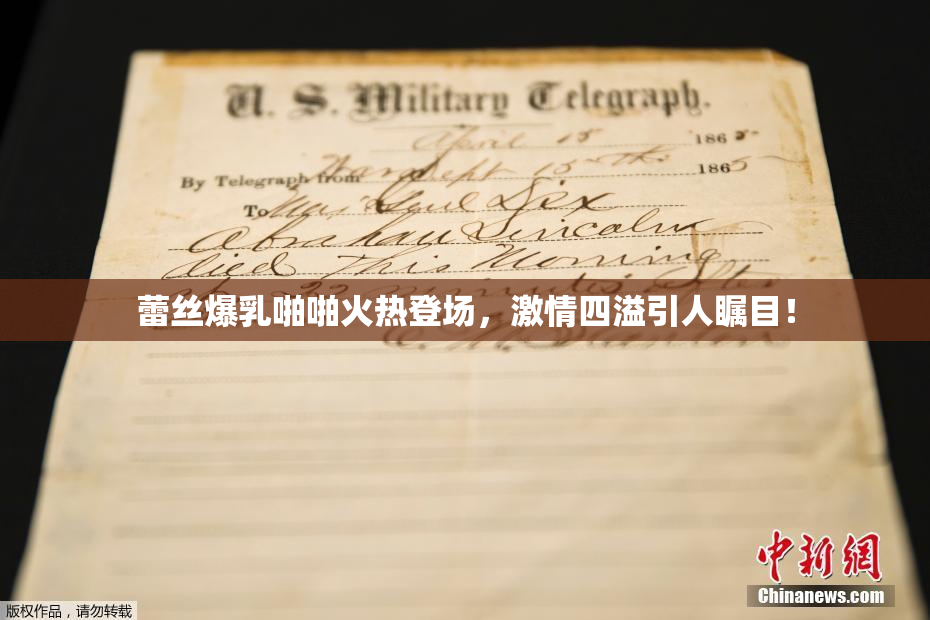 U. S. Military Telegraph.
April 15 1865
By Telegraph from War Dept 15th 1865
To Maj Genl Dix
Abraham Lincoln
died This Morning
22 minutes after
蕾丝爆乳啪啪火热登场，激情四溢引人瞩目！
E. M. Stanton
中新网
Chinanews.com
版权作品，请勿转载